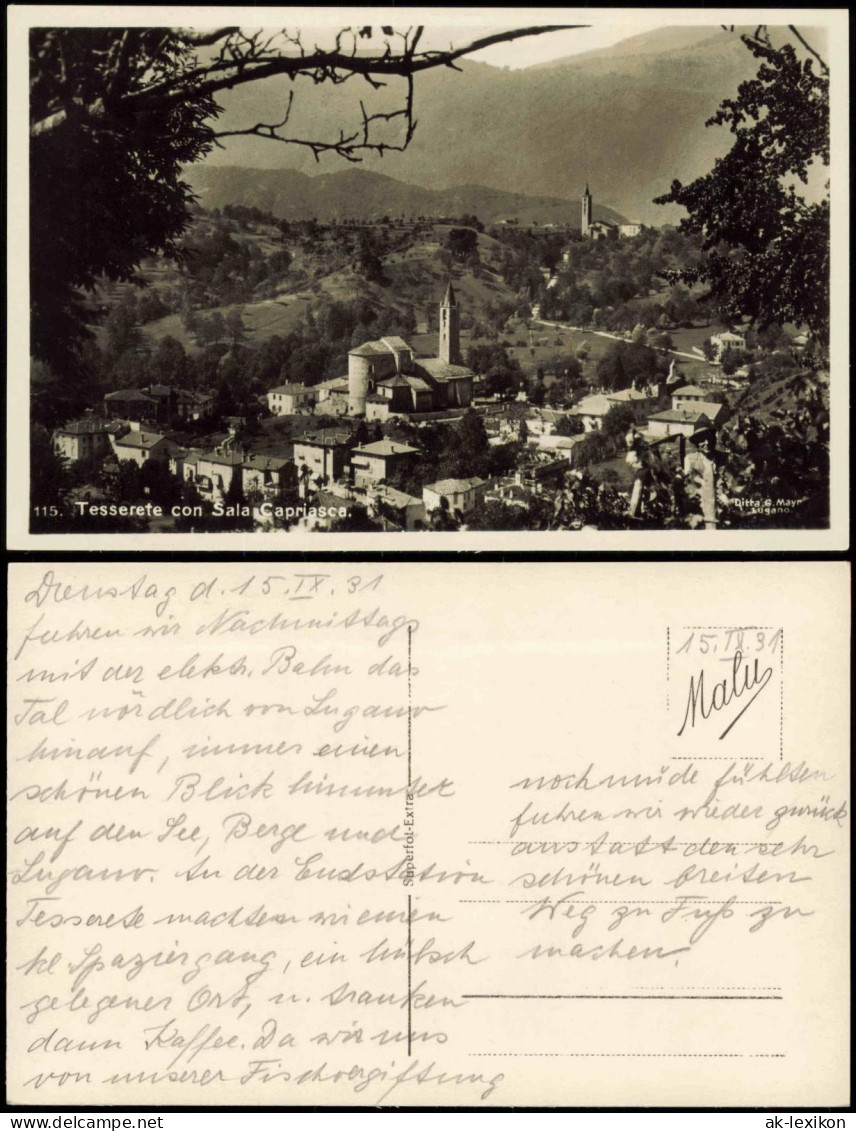 115. Tessserete con Sala Capriasca.
Ditta G. Mayr
Lugano
Dienstag d. 15. IX. 31
fuhren wir Nachmittags
mit der elektr. Bahn das
Tal nördlich von Lugano
hinauf, immer einen
schönen Blick hinunter
auf den See, Berge und
Lugano. An der Endstation
Tesserete machten wir einen
kl. Spaziergang, ein hübsch
gelegener Ort, u. tranken
dann Kaffee. Da wir uns
von unserer Fischvergiftung
Superfot-Extra
15. IX. 31
Malu
noch müde fühlten
fuhren wir wieder zurück
anstatt den sehr
schönen breiten
Weg zu Fuß zu
machen.
delcampe.net
ak-lexikon